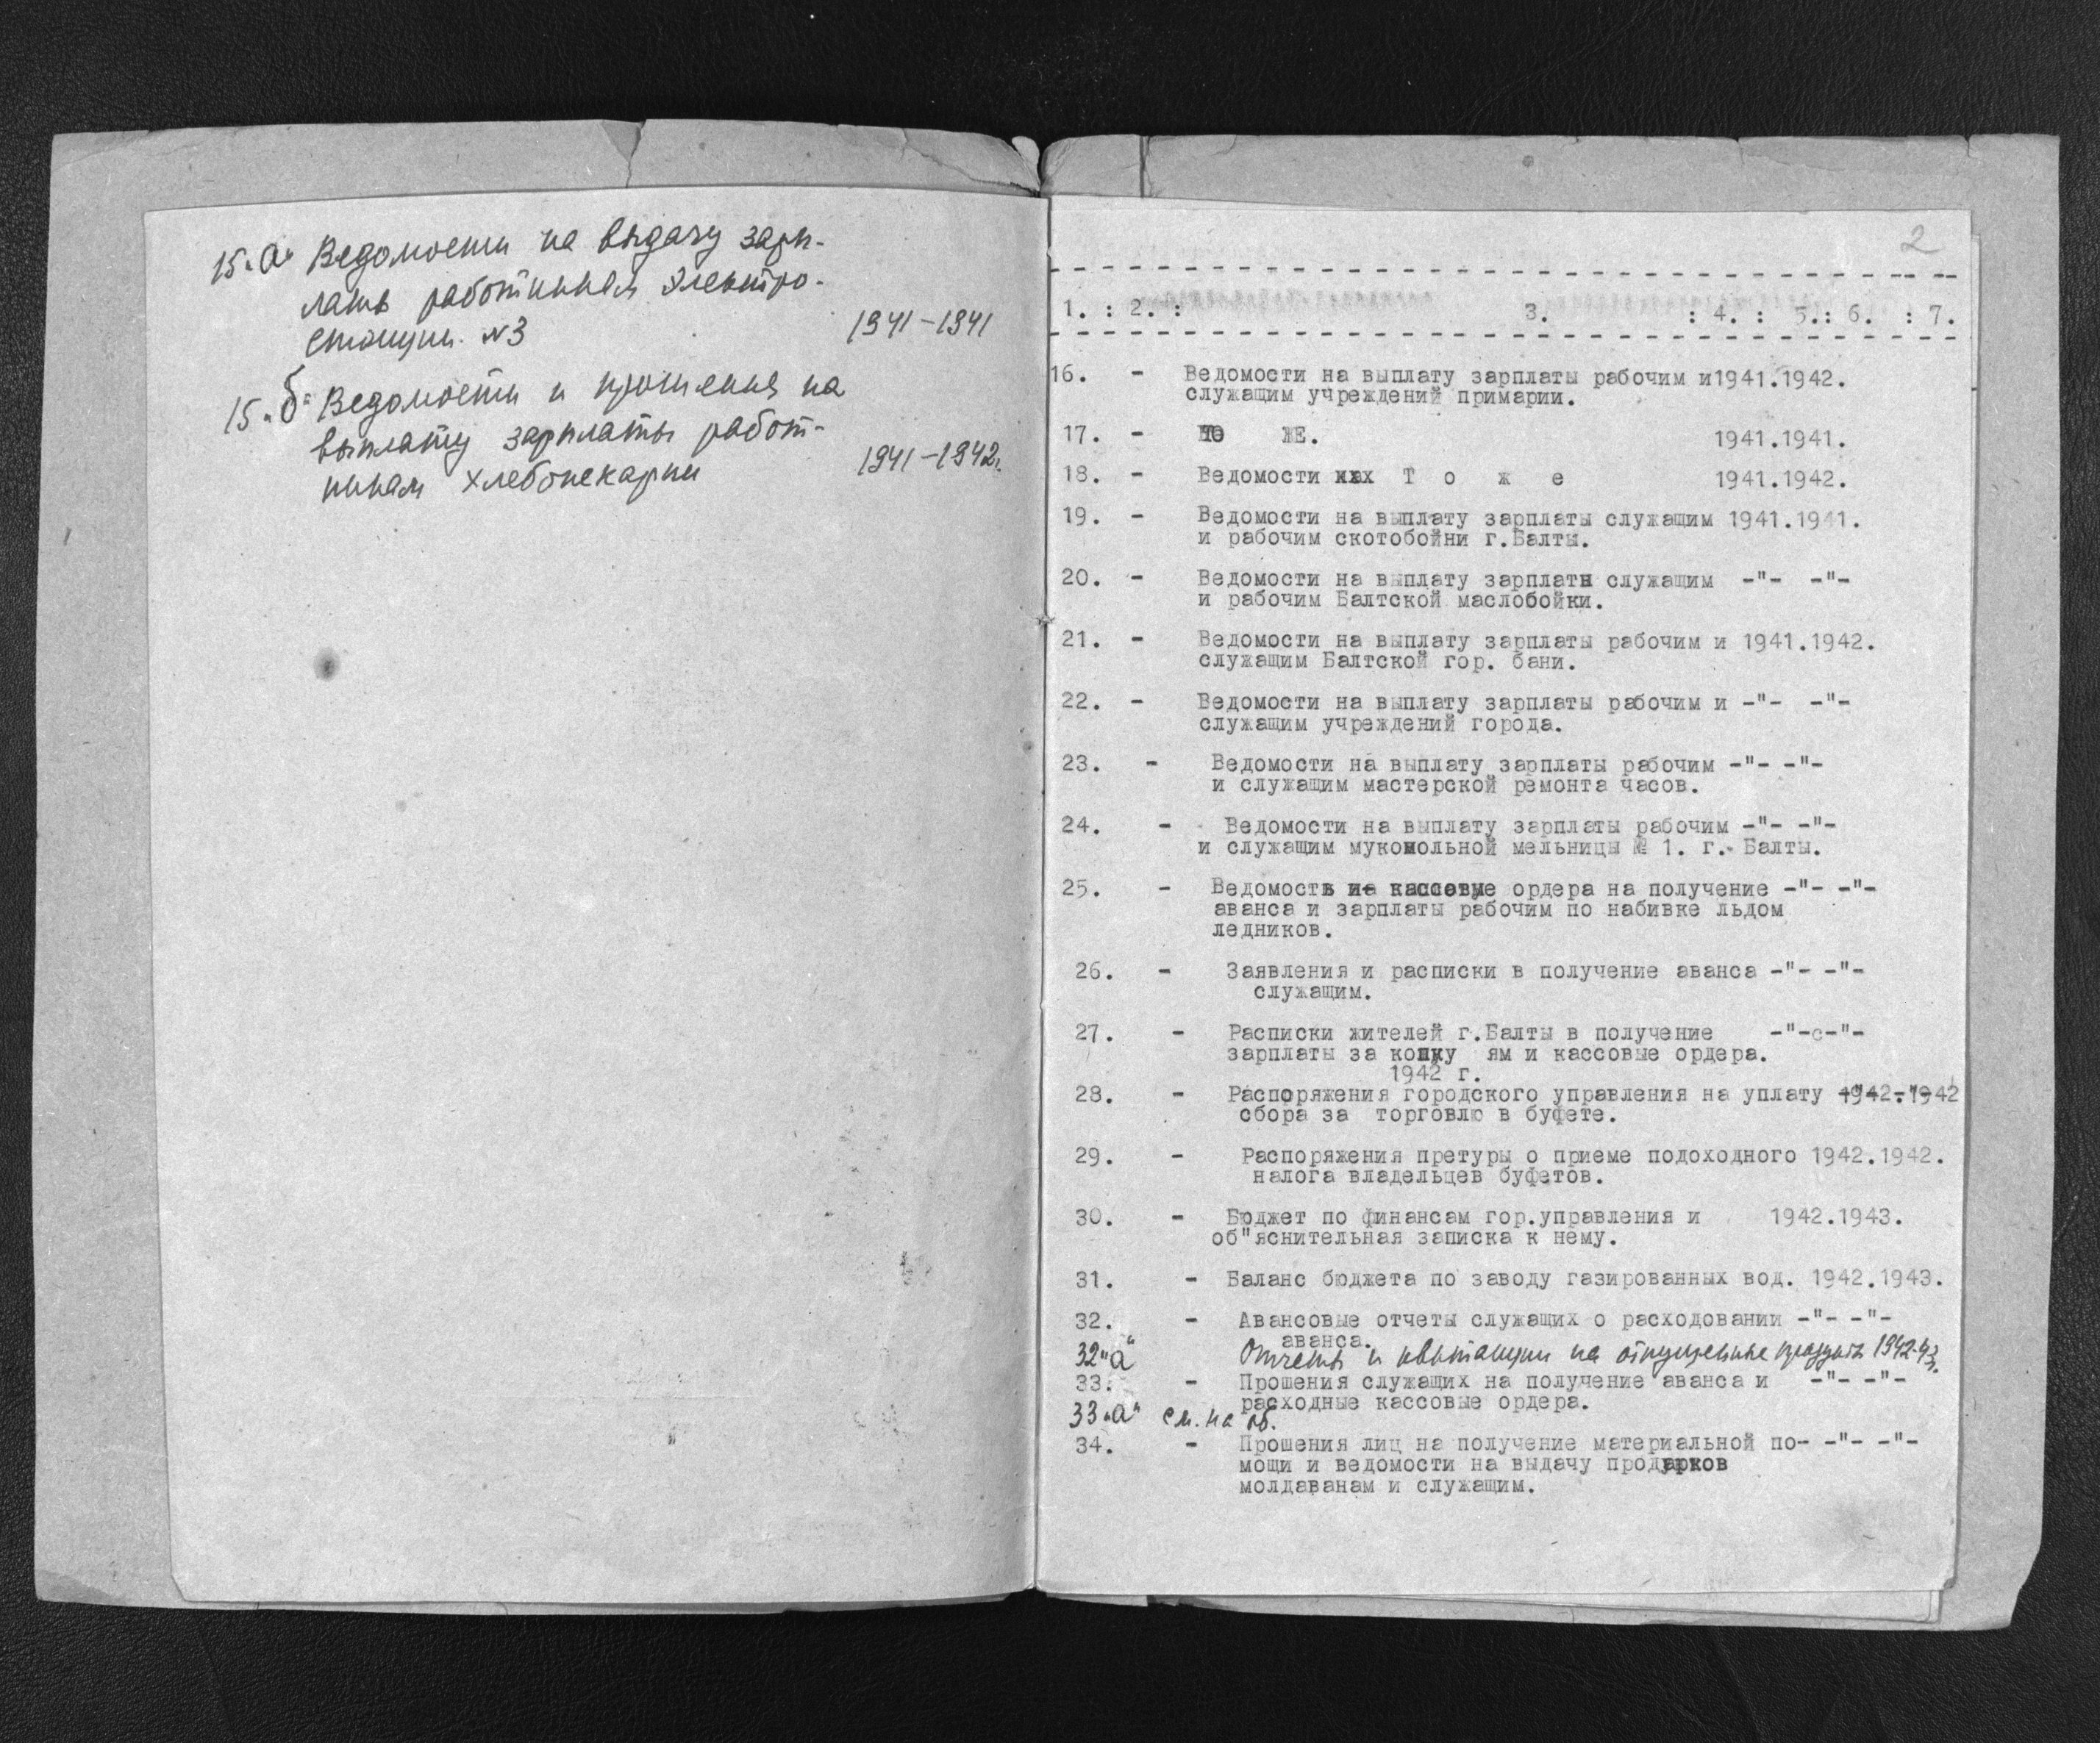 15 "а" Ведомости на выдачу зарп-
латы работникам электро-
станции №3 1941-1941
15 "б" Ведомости и прошения на
выплату зарплаты работ-
никам хлебопекарни 1941-1942г.
2
1. : 2. : 3. : 4. : 5.: 6. : 7.
16. - Ведомости на выплату зарплаты рабочим и 1941.1942.
служащим учреждений примарии.
17. - ТО ЖЕ. 1941.1941.
18. - Ведомости Т о ж е 1941.1942.
19. - Ведомости на выплату зарплаты служащим 1941.1941.
и рабочим скотобойни г.Балты.
20. - Ведомости на выплату зарплаты служащим -"- -"-
и рабочим Балтской маслобойки.
21. - Ведомости на выплату зарплаты рабочим и 1941.1942.
служащим Балтской гор. бани.
22. - Ведомости на выплату зарплаты рабочим и -"- -"-
служащим учреждений города.
23. - Ведомости на выплату зарплаты рабочим -"- -"-
и служащим мастерской ремонта часов.
24. - Ведомости на выплату зарплаты рабочим -"- -"-
и служащим мукомольной мельницы № 1. г. Балты.
25. - Ведомость на кассовые ордера на получение -"- -"-
аванса и зарплаты рабочим по набивке льдом
ледников.
26. - Заявления и расписки в получение аванса -"- -"-
служащим.
27. - Расписки жителей г.Балты в получение -"-с-"-
зарплаты за копку ям и кассовые ордера.
1942 г.
28. - Распоряжения городского управления на уплату 1942.1942
сбора за торговлю в буфете.
29. - Распоряжения претуры о приеме подоходного 1942.1942.
налога владельцев буфетов.
30. - Бюджет по финансам гор.управления и 1942.1943.
об"яснительная записка к нему.
31. - Баланс бюджета по заводу газированных вод. 1942.1943.
32. - Авансовые отчеты служащих о расходовании -"- -"-
аванса.
32 "а" Отчеты и квитанции на отпущенные продукты 1942-43г.
33. - Прошения служащих на получение аванса и -"- -"-
расходные кассовые ордера.
33 "а" см. на об.
34. - Прошения лиц на получение материальной по- -"- -"-
мощи и ведомости на выдачу продарков
молдаванам и служащим.